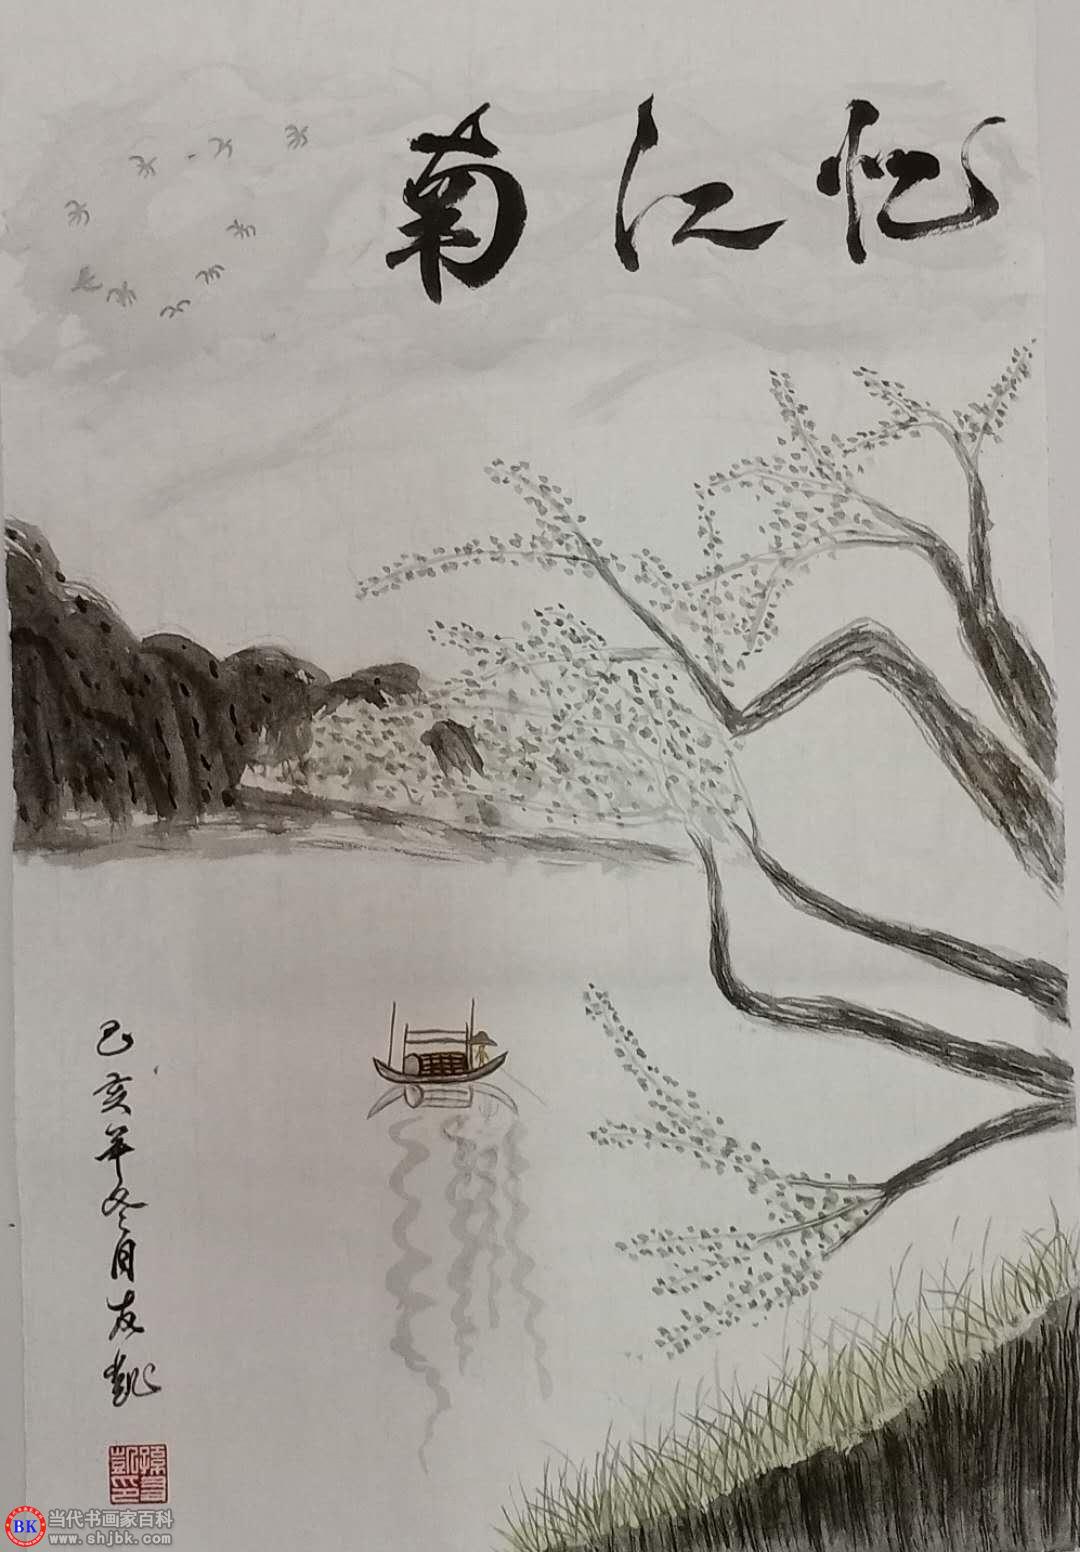 忆江南
己亥年冬月友凱
孫友
凱印
BK
当代书画家百科
www.shjbk.com